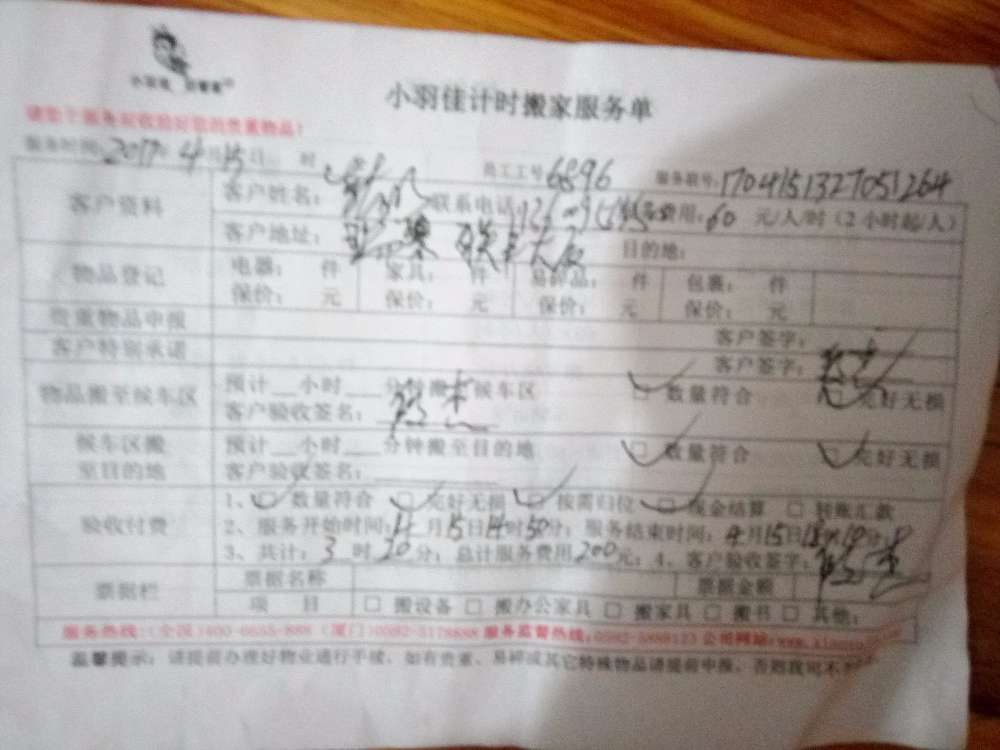 小羽佳计时搬家服务单
服务时间:2017年4月15日 时 员工工号6896 服务联号:1704151327051264
客户资料 客户姓名: 联系电话: 费用:60 元/人/时(2小时起/人)
客户地址: 目的地:
物品登记 电器: 件 家具: 件 易碎品: 件 包裹: 件
保价: 元 保价: 元 保价: 元 保价: 元
贵重物品申报 客户签字:
客户特别承诺 客户签字:
物品搬至候车区 预计__小时___分钟搬至候车区 □数量符合 □完好无损
客户验收签名:
候车区搬至目的地 预计__小时___分钟搬至目的地 □数量符合 □完好无损
客户验收签名:
验收付费 1、□数量符合 □完好无损 □按需归位 □现金结算 □转账汇款
2、服务开始时间:4月15日14时50分;服务结束时间:4月15日18时10分;
3、共计:3时20分;总计服务费用200元;4、客户验收签字:
票据栏 票据名称 票据金额
项 目 □搬设备 □搬办公家具 □搬家具 □搬书 □其他:
服务热线:(全国)400-6655-888 (厦门)0592-3178888 服务监督热线:0592-5889123 公司网站:www.
温馨提示:请提前办理好物业通行手续、如有贵重、易碎或其它特殊物品请提前申报、否则我司不